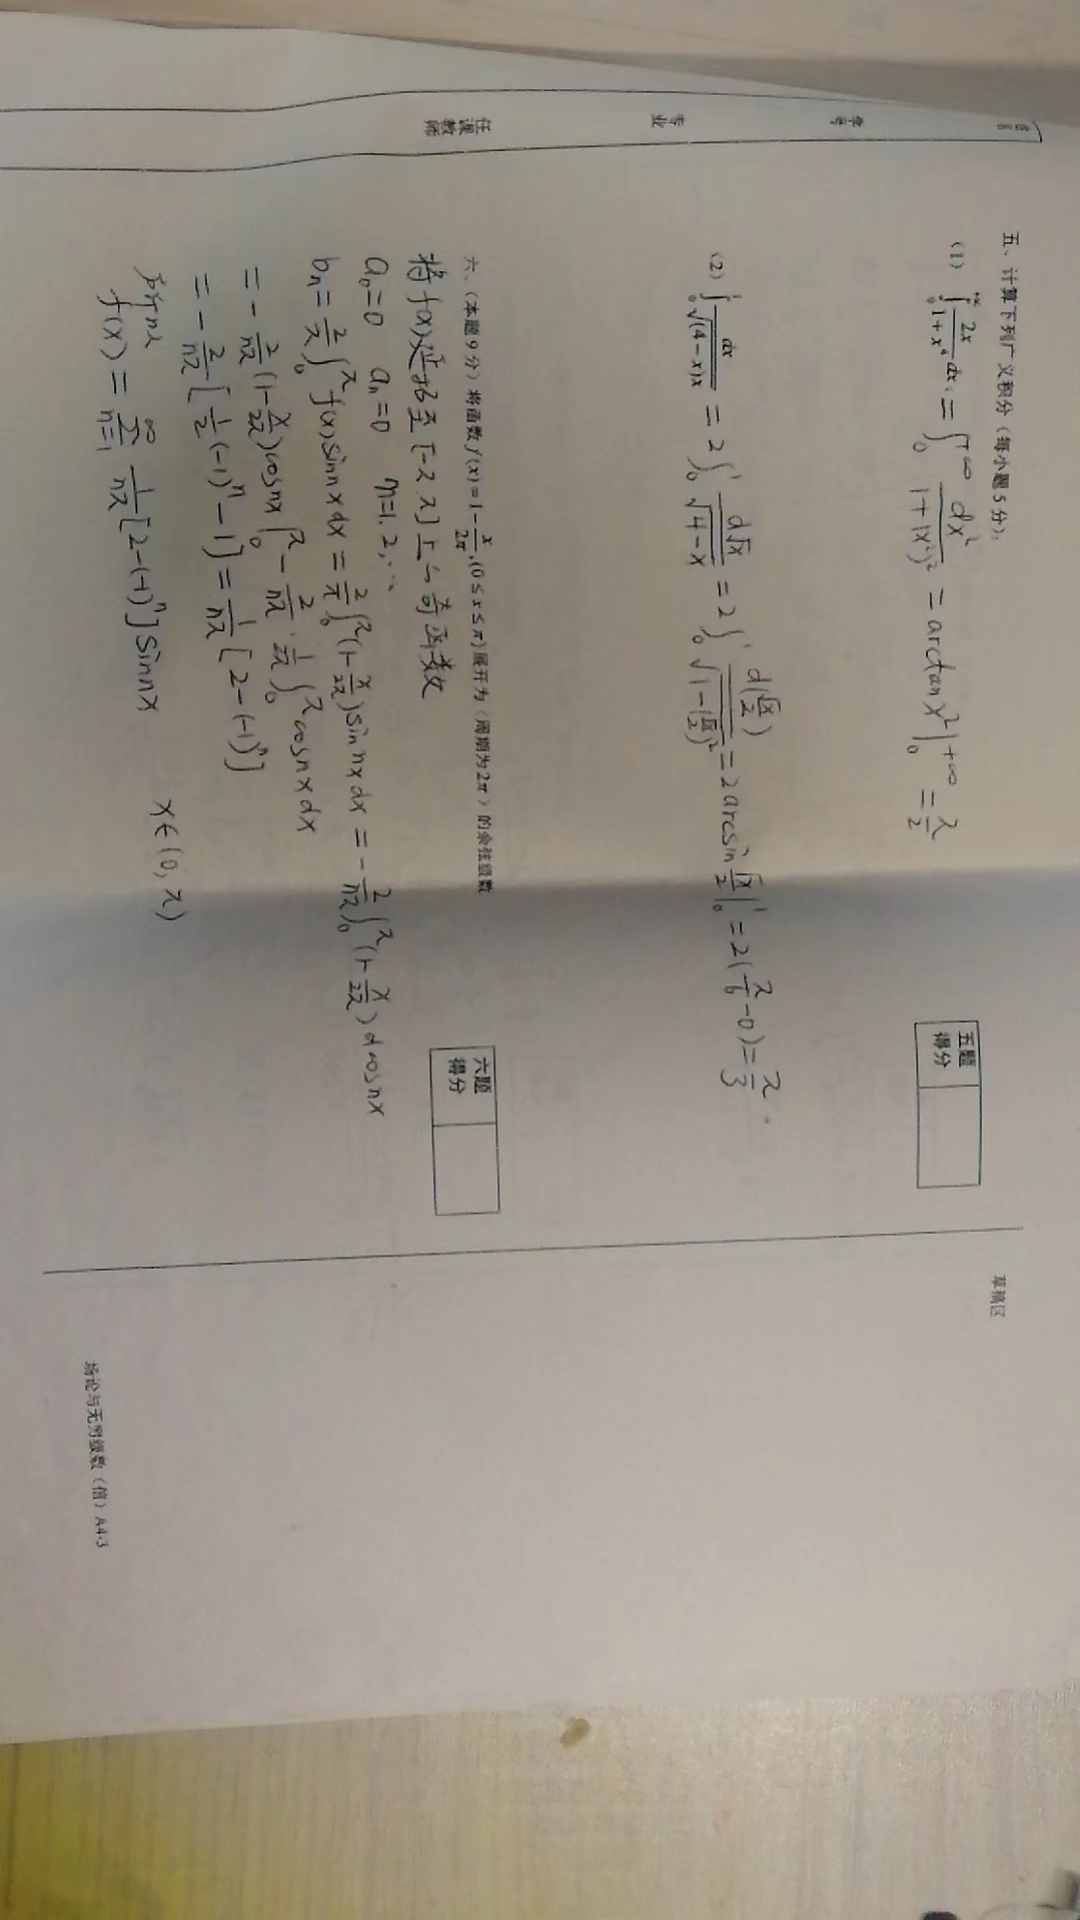 五、计算下列广义积分（每小题5分）:
(1) ∫₀^{+∞} 2x/(1+x⁴) dx. = ∫₀^{+∞} dx²/(1+(x²)²) = arctan x² |₀^{+∞} = π/2
五题得分
草稿区
(2) ∫₀¹ dx/√((4-x)x) = 2∫₀¹ d√x/√(4-x) = 2∫₀¹ d(√x/2)/√(1-(√x/2)²) = 2 arcsin √x/2 |₀¹ = 2(π/6 - 0) = π/3
六、（本题9分）将函数 f(x)=1-x/2π, (0≤x≤π) 展开为（周期为2π）的余弦级数
六题得分
将f(x)延拓至[-π π]上一奇函数
a₀=0 aₙ=0 n=1. 2, …
bₙ = 2/π ∫₀^π f(x) sin nx dx = 2/π ∫₀^π (1-x/2π) sin nx dx = - 2/nπ ∫₀^π (1-x/2π) d cos nx
= - 2/nπ (1-x/2π) cos nx |₀^π - 2/nπ · 1/2π ∫₀^π cos nx dx
= - 2/nπ [1/2 (-1)ⁿ - 1] = 1/nπ [2-(-1)ⁿ]
所以
f(x) = ∑_{n=1}^∞ 1/nπ [2-(-1)ⁿ] sin nx x∈(0, π)
场论与无穷级数（信）A4-3
学号
专业
任课教师